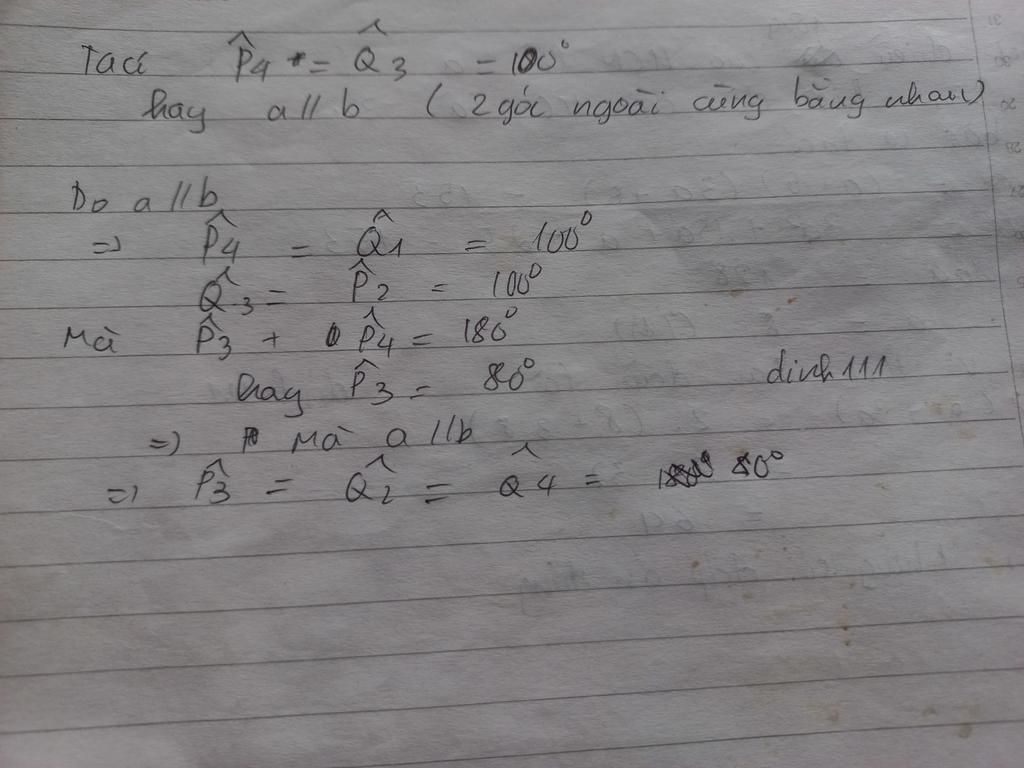 Ta có P̂4 = Q̂3 = 100°
hay a // b ( 2 góc ngoài cùng bằng nhau)
Do a // b
=> P̂4 = Q̂1 = 100°
Q̂3 = P̂2 = 100°
Mà P̂3 + P̂4 = 180°
hay P̂3 = 80° dinh111
=> Mà a // b
=> P̂3 = Q̂2 = Q̂4 = 80°